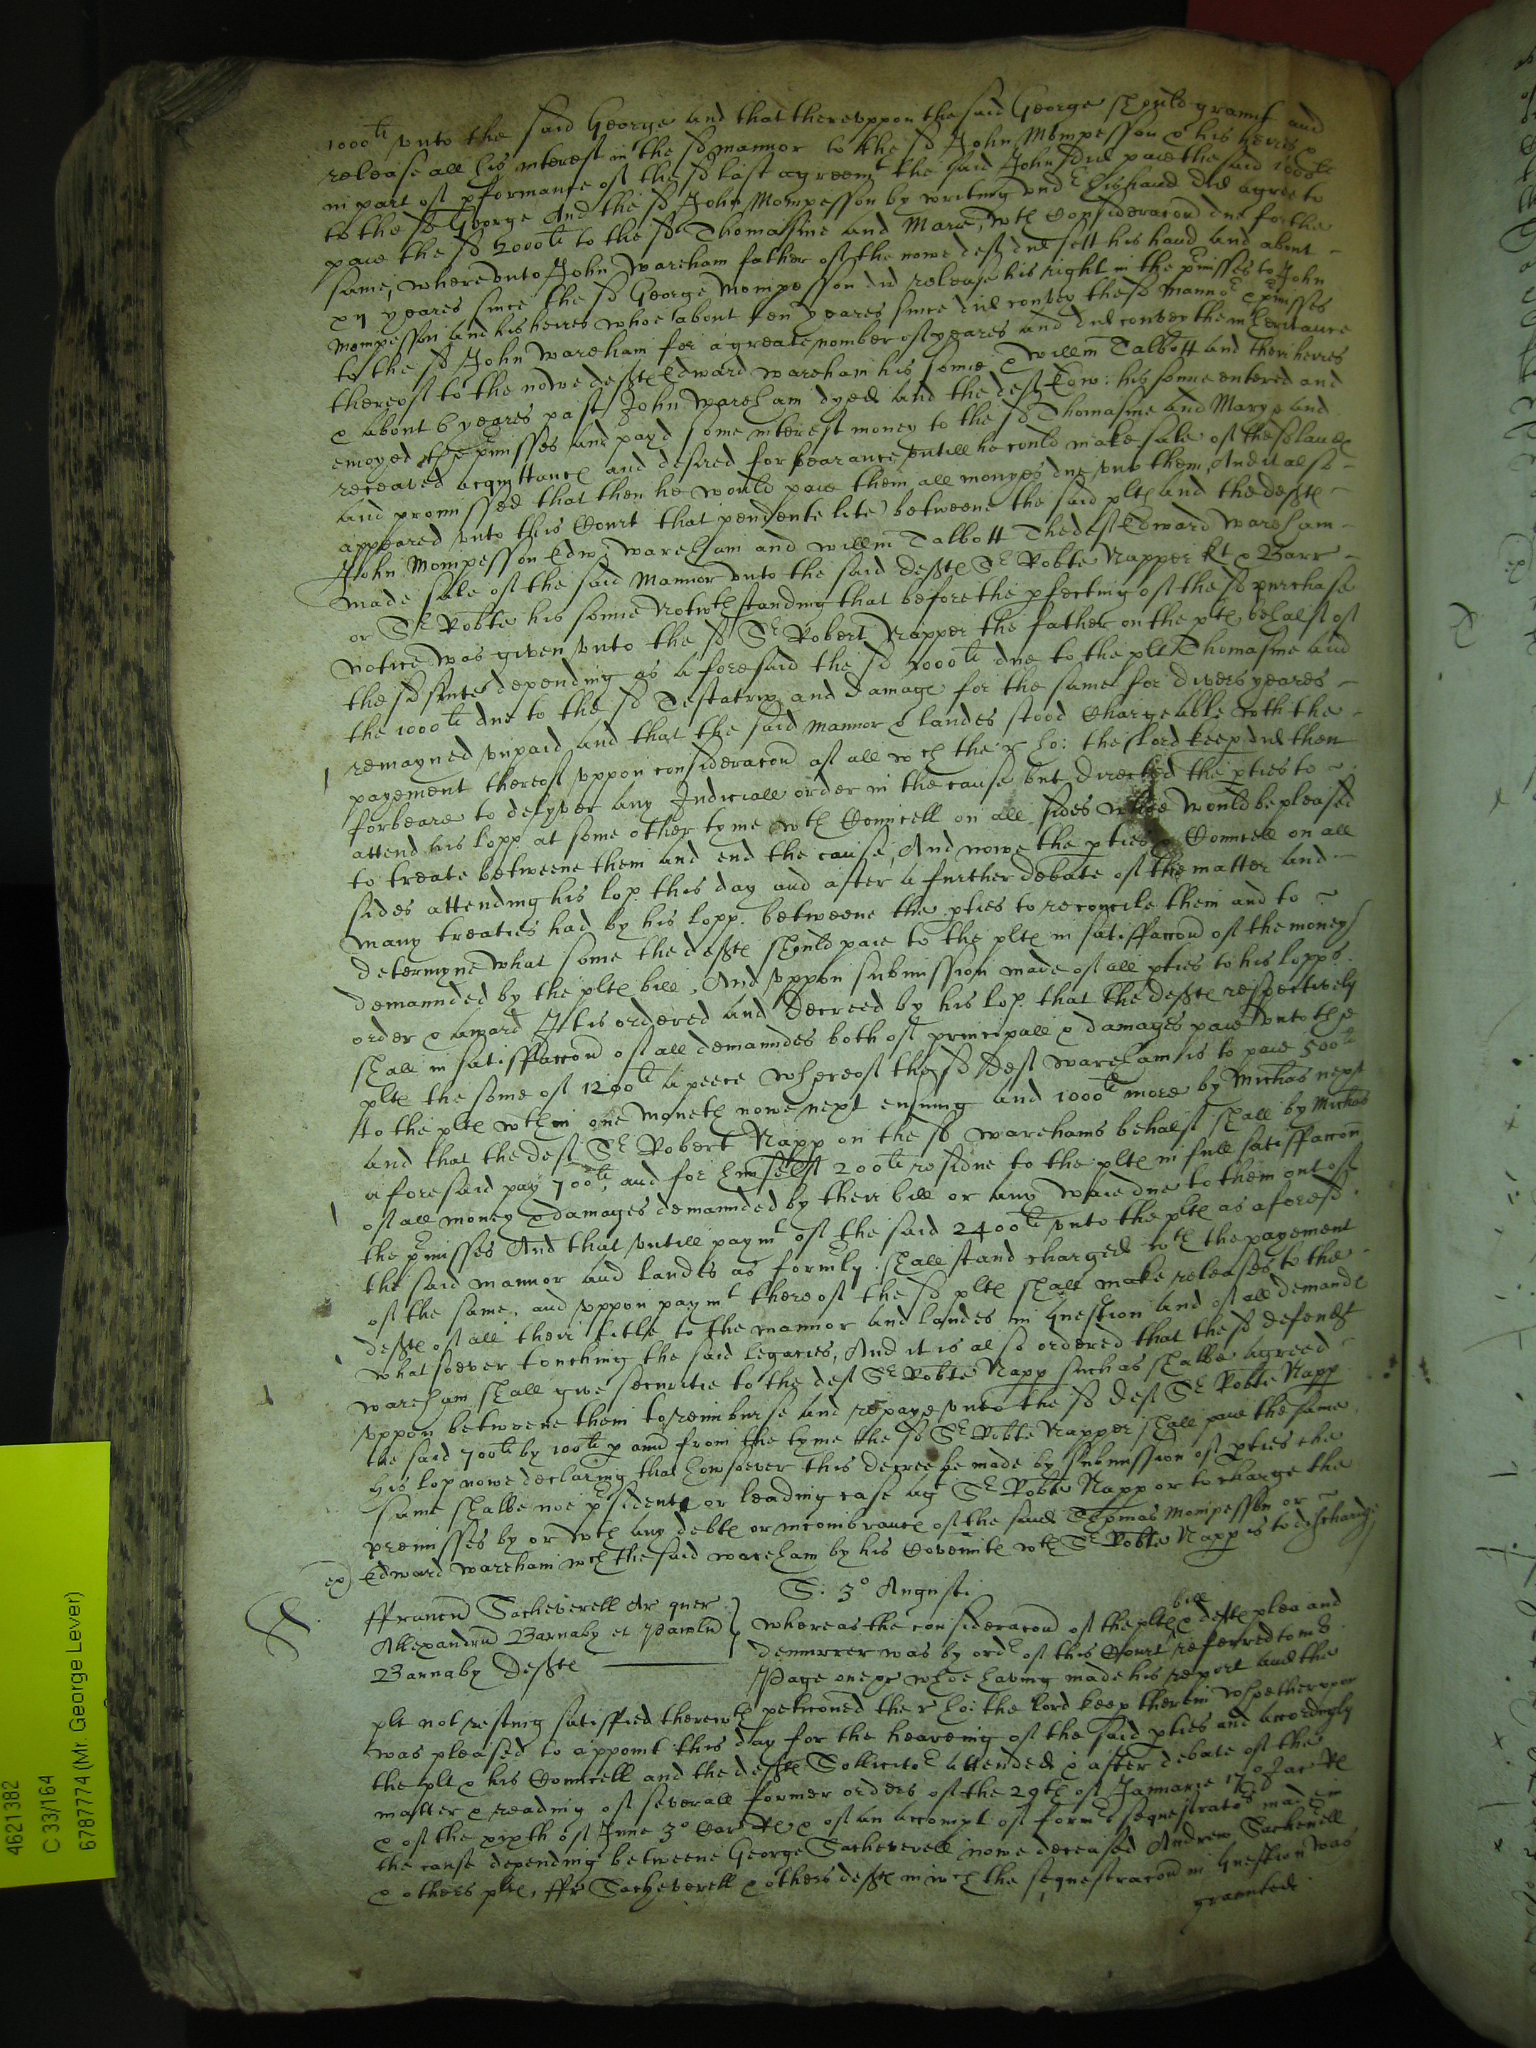 1000li vnto the said George and that therevppon the said George should graunt and
release all his interest in the sd mannor to the sd John Mompesson & his heires &
in part of pformance of the sd last agreemt the said John did paie the said 1000li
to the sd George And the sd John Mompesson by writing vndr his hand did agree to
paie the sd 2000li to the sd Thomasine and Marie, wth Consideracon due for the
same, wherevnto John Wareham father of the nowe deft did sett his hand and about
xij yeares since the sd George Mompesson did release his right in the pmisses to John
Mompesson and his heires whoe about ten yeares since did convey the sd mannor & pmisses
to the sd John Wareham for a greate nomber of yeares and did convey the inheritaunce
thereof to the nowe defte Edward Wareham his sonne & Willm Talbott and their heires
& about 6 yeares past John Wareham dyed and the deft Edw: his sonne entered and
enioyed the pmisses and payd some interest money to the sd Thomasine and Marye and
receaved acquittance and desired forbearance vntill he could make sale of the sd lande
and promissed that then he would paie them all monyes due vnto them, And it also
appeared vnto this Court that pendente lite betweene the said plte and the defte
John Mompesson Edw: Wareham and Willm Talbott The deft Edward Wareham
made sale of the said Mannor vnto the said defte Sr Robte Napper Kt & Barr
or Sr Robte his sonne Notwthstanding that before the pfecting of the sd purchase
notice was given vnto the sd Sr Robert Napper the father on the plte behalf of
the sd suite depending as aforesaid the sd 2000li due to the plt Thomasine and
the 1000li due to the sd Testatrix and damage for the same for divers yeares
remayned vnpaid and that the said mannor & landes stood Chargeable with the
payement thereof vppon consideracon of all wch the r ho: the Lord keep did then
forbeare to delyver any Judiciall order in the cause but directed the pties to
attend his lopp at some other tyme wth Councell on all sides whoe would be pleased
to treate betweene them and end the cause, And nowe the pties & Councell on all
sides attending his lop. this day and after a further debate of the matter and
many treaties had by his lopp. betweene the pties to reconcile them and to
determyne what some the defte should paie to the plte in satisfaccon of the money
demaunded by the plte bill, And vppon submission made of all pties to his lopps
order & award It is ordered and decreed by his lop. that the defte respectively
shall in satisfaccon of all demaundes both of principall & damages paie vnto the
plte the some of 1200li apeece whereof the sd deft Wareham is to paie 500li
to the plte wthin one moneth nowe next ensuing and 1000li more by Michas next
and that the deft Sr Robert Napp on the sd Warehams behalf shall by Michas
aforesaid pay 700li, and for himself 200li residue to the plte in full satisfaccon
of all money & damages demaunded by their bill or any waie due to them out of
the pmisses And that vntill paymt of the said 2400li vnto the plte as aforesd
the said mannor and landes as formly shall stand charged wth the payement
of the same. and vppon paymt thereof the sd plte shall make releases to the
defte of all their title to the mannor and landes in question and of all demande
whatsoever touching the said legacies, And it is also ordered that the sd defendt
Wareham shall give securitie to the deft Sr Robte Napp such as shalbe agreed
vppon betweene them to reimburse and repaye vnto the sd deft Sr Robte Napp
the said 700li by 100li p ann from the tyme the sd Sr Robte Napper shall paie the same
his lop nowe declaring that howsoever this decree be made by submission of pties the
same shalbe noe psident or leading case agt Sr Robte Napp or to charge the
premisses by or wth any debte or incombrance of the said Thomas Mompesson or
ex Edward Wareham wch the said Wareham by his Covennte wth Sr Robte Napp is to discharge
S: 3o Augusti
ffrancu Sacheverell Ar quer
Allexandru Barnaby et
Barnaby Defte
Whereas the consideracon of the plte bill & defte plea and
demurrer was by ordr of this Court referred to mr
Page one &c whoe having made his report and the
plt not resting satisfied therewth peticoned the r ho: the Lord keep therein whoe therevppon
was pleased to appoint this day for the heareing of the said pties and accordingly
the plt & his Councell and the defte Sollicitor attended & after debate of the
matter & reading of severall former orders of the 29th of Januarie 17o Jac Re
& of the sixth of June 3o Car Re & of an accompt of formr sequestrators made in
the cause depending betweene George Sacheverell nowe deceased Andrew Sacheverell
& others plte, ffr Sacheverell & others defte in wch the sequestracon in question was
graunted
4621382
C 33/164
6787774 (Mr. George Lever)